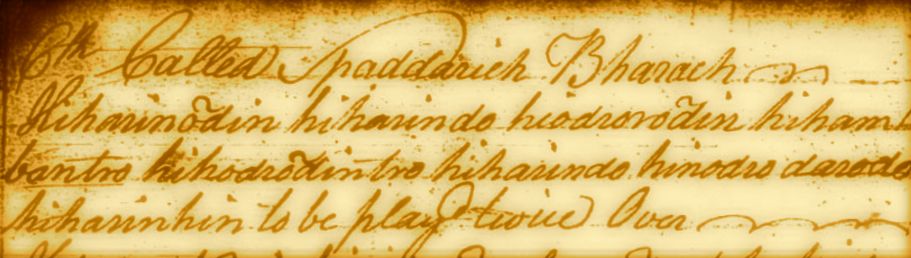 6th Called Spaddarich Bharach
Hiharinõdin hiharindo hiodrorõdin hiham
bantro hihodrõdintro hiharindo hinodro darodo
hiharinhin to be playd twice Over